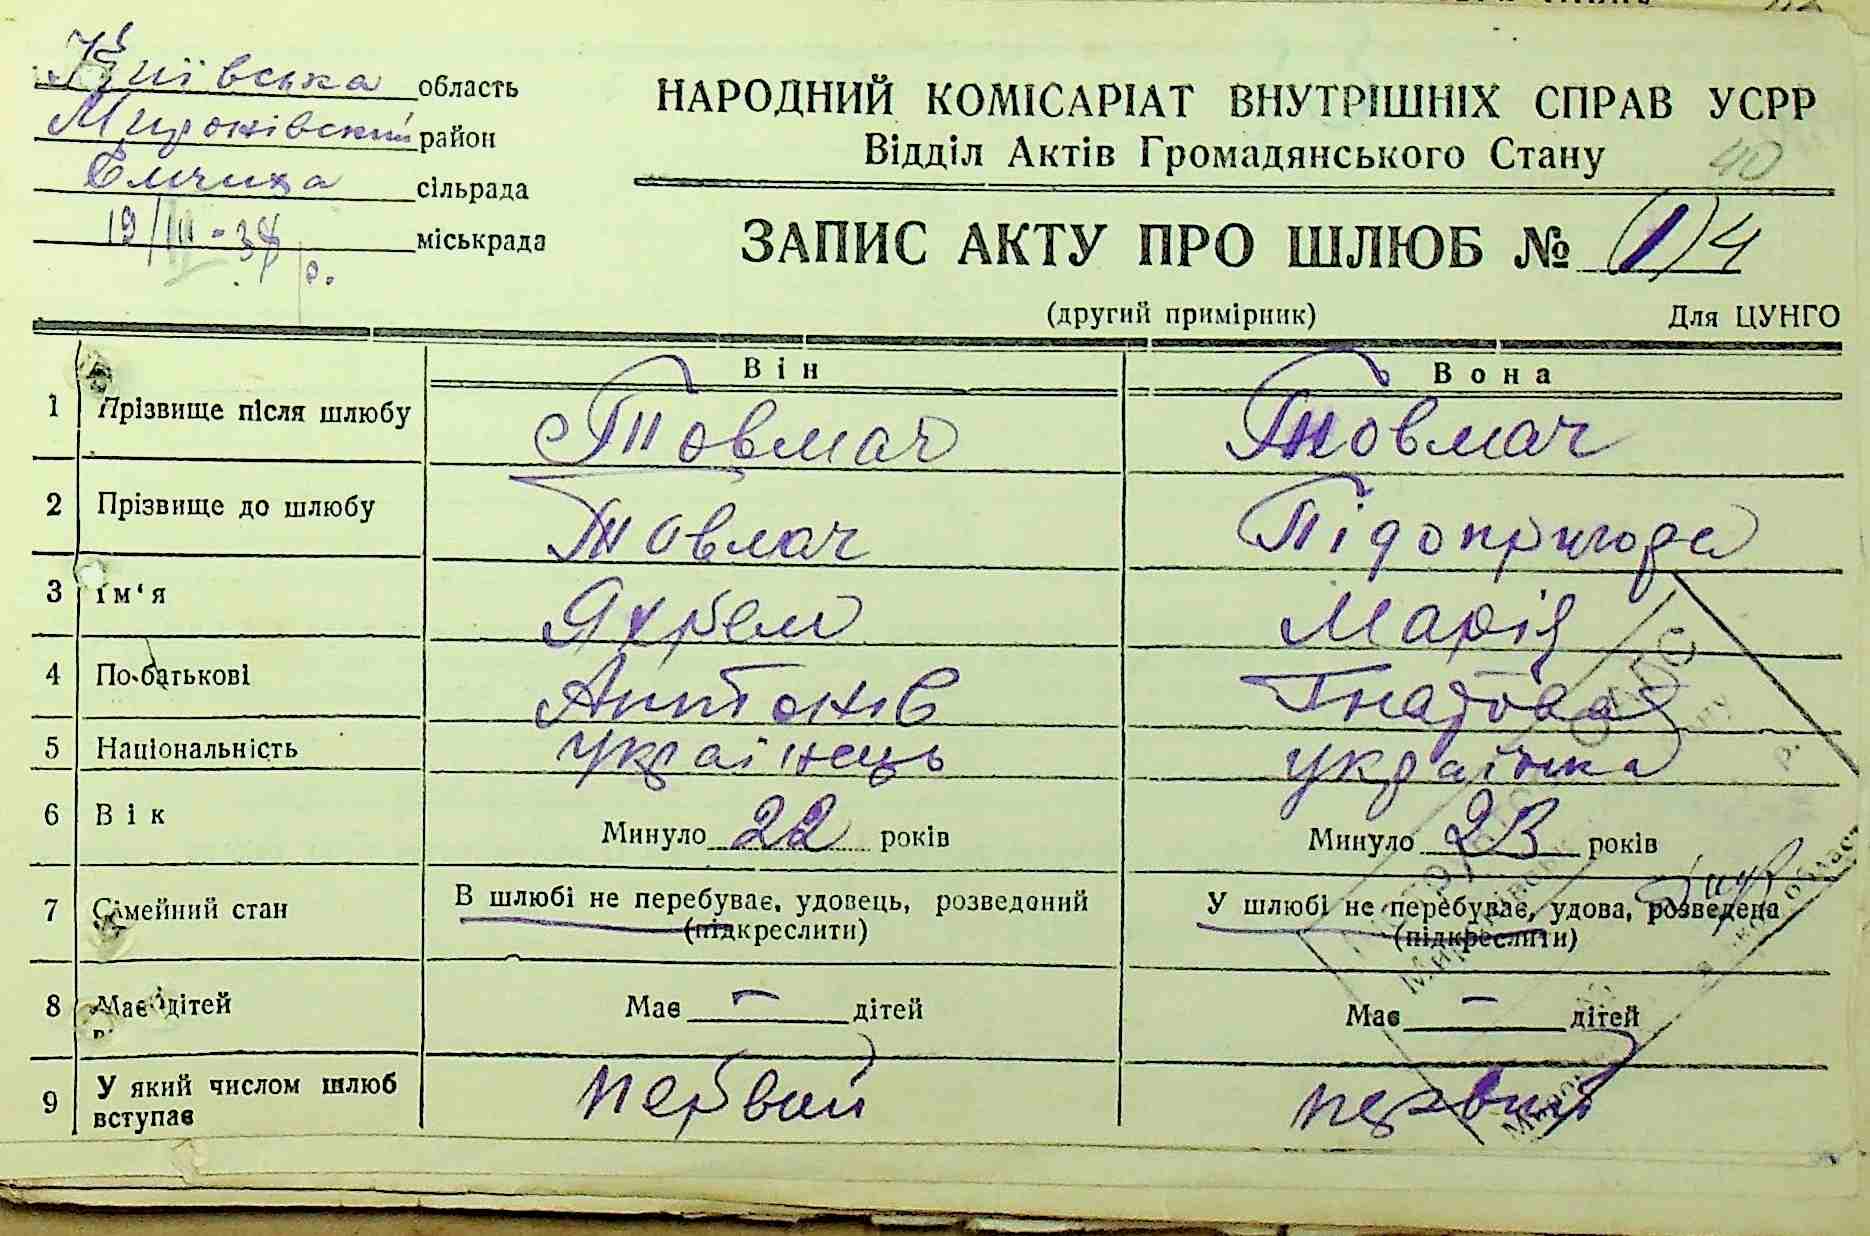 Київська область
Миронівский район
Емчиха сільрада
19/III-38 р. міськрада
НАРОДНИЙ КОМІСАРІАТ ВНУТРІШНІХ СПРАВ УСРР
Відділ Актів Громадянського Стану
40
ЗАПИС АКТУ ПРО ШЛЮБ № (1) 4
(другий примірник) Для ЦУНГО
Він Вона
1 Прізвище після шлюбу Товмач Товмач
2 Прізвище до шлюбу Товмач Підопригора
3 Ім‘я Яхрем Марія
4 По-батькові Антонів Гнатова
5 Національність українець українка
6 Вік Минуло 22 років Минуло 23 років
7 Сімейний стан В шлюбі не перебуває, удовець, розведений У шлюбі не перебуває, удова, розведена
(підкреслити) (підкреслити)
8 Має дітей Має – дітей Має – дітей
9 У який числом шлюб вступає первий первий